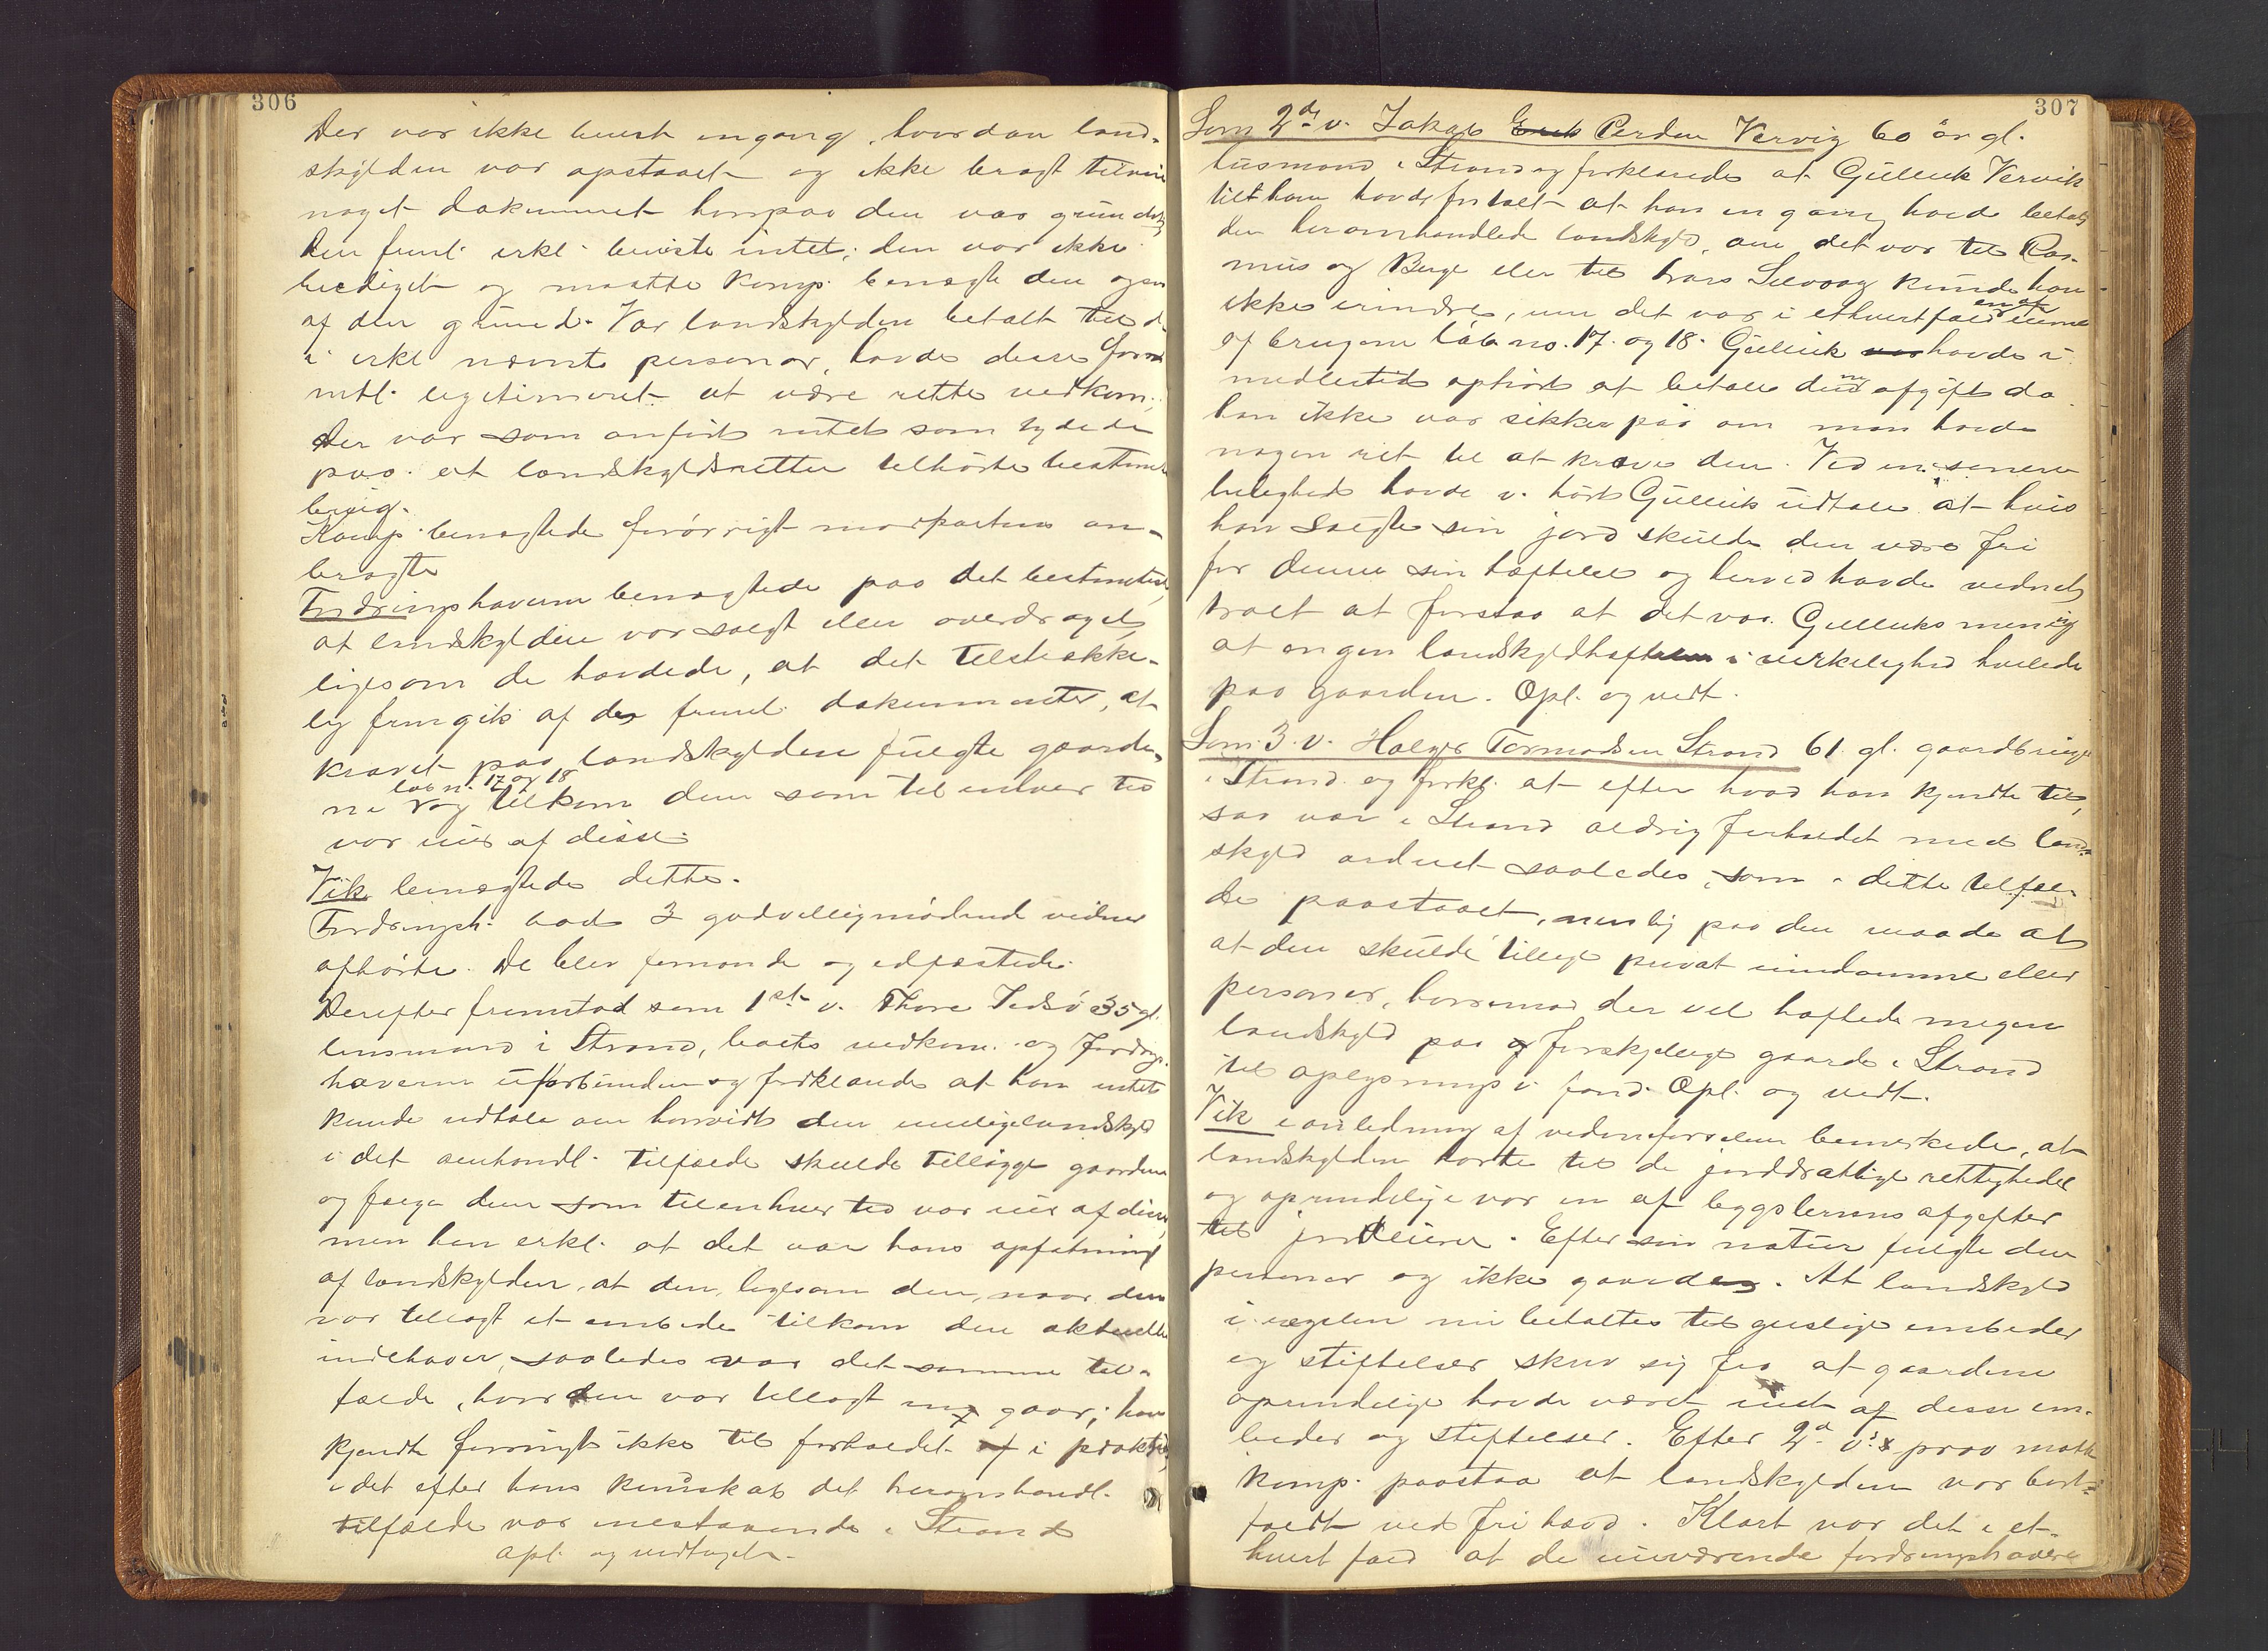 306
Der var ikke bevist engang, hvordan land-
skylden var opstaaet og ikke bragt tilveie
noget dokument hvorpaa den var grundet,
den freml. erkl. beviste intet; den var ikke
beediget og maatte Komp. benægte den ogsaa
af den grund. Var landskylden betalt til de
i erkl nævnte personer, havde disse
legitimeret at være rette vedkom.,
der var som anført intet som tydede
paa at landskyldsretten tilhørte bestemt
brug.
Komp. benægtede forøvrigt modpartens an-
bragte
Fordringshaverne benægtede paa det bestemteste,
at landskylden var solgt eller overdraget,
ligesom de hævdede, at det tilstrække-
lig fremgik af de freml. dokumenter, at
kravet paa landskylden fulgte gaarde-
løbn. 17 og 18
ne og tilkom dem som til enhver tid
var eier af disse.
Vik benægtede dette.
Fordringsh. bad 3 godvilligmødende vidner
afhørte. De blev formanede og edfæstede.
Derefter fremstod som 1ste v. Thore Idsø 35 gl.
lensmand i Strand, beots vedkom. og fordrings-
haverne uforbunden og forklarede at han intet
kunde udtale om hvorvidt den omh landskyld
i det omhandl. tilfælde skulde tillægge gaarden
og følge dem som til enhver tid var eier af disse,
men han erkl. at det var hans opfatning
af landskylden, at den, ligesom den, naar den
var tillagt et embede tilkom den aktuelle
indehaver, saaledes var det samme til-
fælde, hvor den var tillagt en gaar; han
kjendte forøvrigt ikke til forholdet i praksis,
idet efter hans kundskab det heromhandl.
tilfælde var enestaaende i Strand
Opl. og vedtaget.
307
Som 2det v. Jakob Erik Pedersen Vervig 60 år gl.
husmand i Strand og forklarede at Gulleik Vervik
til ham havde fortalt at han en gang havde betalt
den heromhandlede landskyld, om det var til Ras-
mus og Berge eller til Lars Selvaag kunde han
ikke erindre, men det var i ethvertfald en af eierne
af brugene løbno. 17 og 18. Gulleik havde i-
midlertid ophørt at betale denne afgift da
han ikke var sikker på om man havde
nogen ret til at kræve den. Ved en senere
leilighed havde v. hørt Gulleik udtale at hvis
han solgte sin jord skulde den være fri
for denne sin hæftelse og herved havde vidnet
troet at forstaa at det var Gulleiks mening
at ingen landskyldhæftelse i virkelighed hvilede
paa gaarden. Opl. og vedt.
Som 3. v. Holger Tormodsen Strand 61. gl. gaardbruger
i Strand og forkl. at efter hvad han kjendte til,
saa var i Strand aldrig forholdet med land-
skyld ordnet saaledes, som i dette tilfæl-
de paastaaet, nemlig paa den maade at
at den skulde tillige privat eiendomme eller
personer, hvorimod der vel hæftede megen
landskyld paa forskjellige gaarde i Strand
til oplysnings v. fond. Opl. og vedt.
Vik i anledning af vidneførselen bemerkede, at
landskylden hørte til de jorddrotlige rettigheder
og oprindelige var en af bygslernes afgifter
til jordeieren. Efter sin natur fulgte den
personer og ikke gaarde. At landskyld
i regelen nu betaltes til geislige embeder
og stiftelser skrev sig fra at gaardene
oprindelige havde været eiet af disse em-
beder og stiftelser. Efter 2d v's prov maatte
komp. paastaa at landskylden var bort-
faldt ved fri hævd. Klart var det i et-
hvert fald at de nuværende fordringshavere